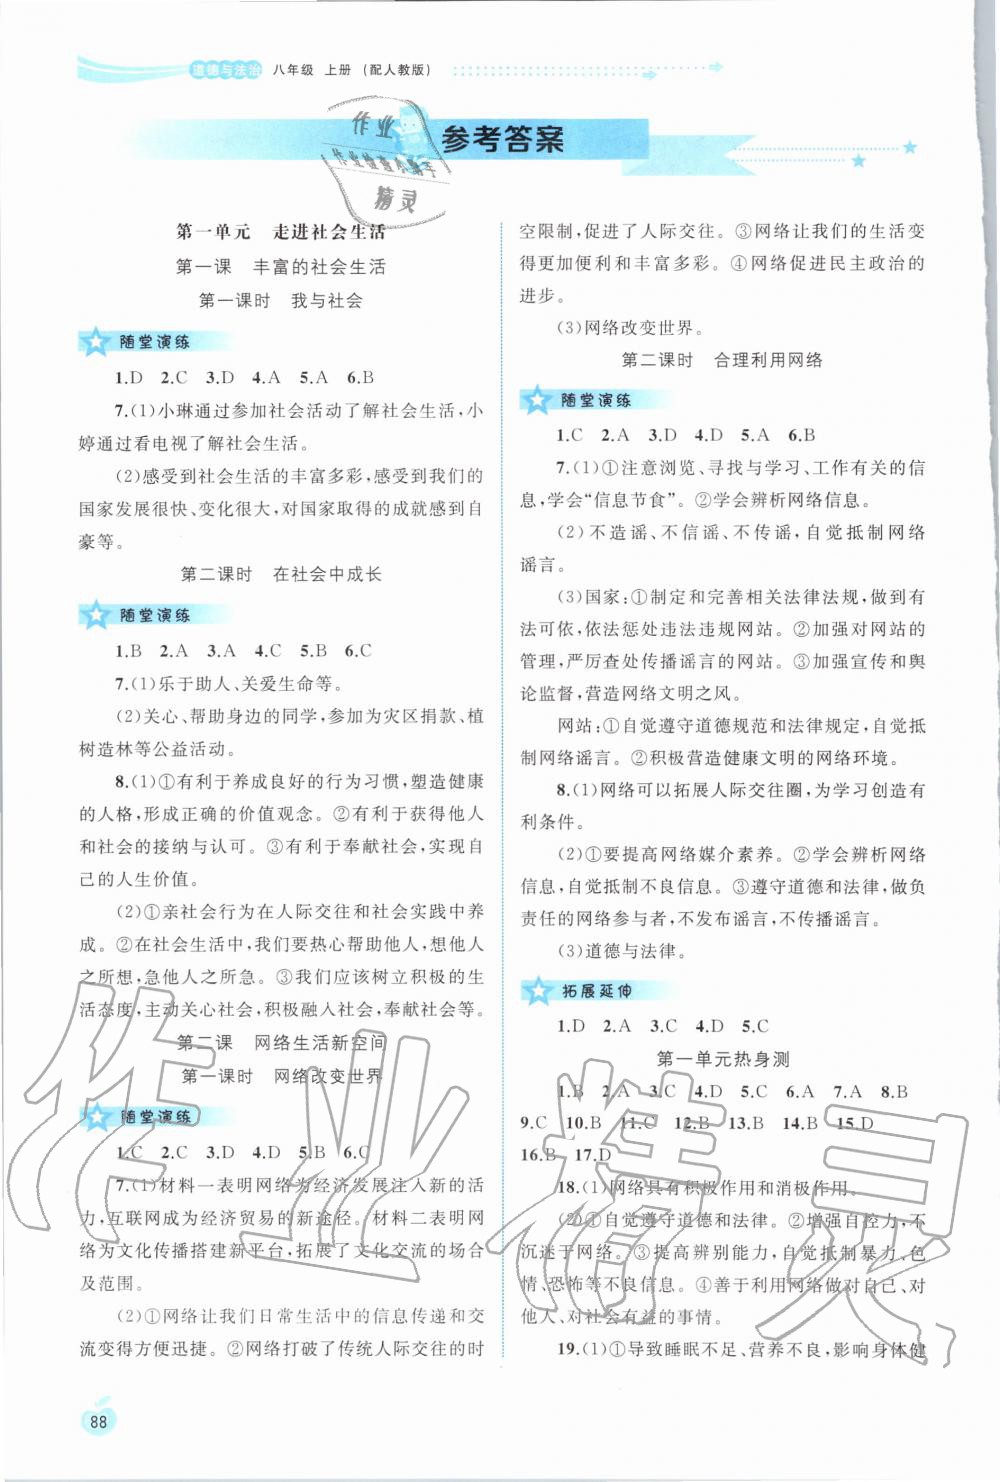 道德与法治 八年级 上册 (配人教版)
参考答案
作业
作业检查小助手
精灵
第一单元 走进社会生活
第一课 丰富的社会生活
第一课时 我与社会
随堂演练
1.D 2.C 3.D 4.A 5.A 6.B
7.(1)小琳通过参加社会活动了解社会生活,小
婷通过看电视了解社会生活。
(2)感受到社会生活的丰富多彩,感受到我们的
国家发展很快、变化很大,对国家取得的成就感到自
豪等。
第二课时 在社会中成长
随堂演练
1.B 2.A 3.A 4.A 5.B 6.C
7.(1)乐于助人、关爱生命等。
(2)关心、帮助身边的同学,参加为灾区捐款、植
树造林等公益活动。
8.(1)①有利于养成良好的行为习惯,塑造健康
的人格,形成正确的价值观念。②有利于获得他人
和社会的接纳与认可。③有利于奉献社会,实现自
己的人生价值。
(2)①亲社会行为在人际交往和社会实践中养
成。②在社会生活中,我们要热心帮助他人,想他人
之所想,急他人之所急。③我们应该树立积极的生
活态度,主动关心社会,积极融入社会,奉献社会等。
第二课 网络生活新空间
第一课时 网络改变世界
随堂演练
1.C 2.C 3.D 4.D 5.B 6.C
7.(1)材料一表明网络为经济发展注入新的活
力,互联网成为经济贸易的新途径。材料二表明网
络为文化传播搭建新平台,拓展了文化交流的场合
及范围。
(2)①网络让我们日常生活中的信息传递和交
流变得方便迅捷。②网络打破了传统人际交往的时
88
空限制,促进了人际交往。③网络让我们的生活变
得更加便利和丰富多彩。④网络促进民主政治的
进步。
(3)网络改变世界。
第二课时 合理利用网络
随堂演练
1.C 2.A 3.D 4.D 5.A 6.B
7.(1)①注意浏览、寻找与学习、工作有关的信
息,学会“信息节食”。②学会辨析网络信息。
(2)不造谣、不信谣、不传谣,自觉抵制网络
谣言。
(3)国家:①制定和完善相关法律法规,做到有
法可依,依法惩处违法违规网站。②加强对网站的
管理,严厉查处传播谣言的网站。③加强宣传和舆
论监督,营造网络文明之风。
网站:①自觉遵守道德规范和法律规定,自觉抵
制网络谣言。②积极营造健康文明的网络环境。
8.(1)网络可以拓展人际交往圈,为学习创造有
利条件。
(2)①要提高网络媒介素养。②学会辨析网络
信息,自觉抵制不良信息。③遵守道德和法律,做负
责任的网络参与者,不发布谣言,不传播谣言。
(3)道德与法律。
拓展延伸
1.D 2.A 3.C 4.D 5.C
第一单元热身测
1.B 2.A 3.A 4.D 5.C 6.A 7.A 8.B
9.C 10.B 11.C 12.B 13.B 14.B 15.D
16.B 17.D
18.(1)网络具有积极作用和消极作用。
(2)①自觉遵守道德和法律。②增强自控力,不
沉迷于网络。③提高辨别能力,自觉抵制暴力、色
情、恐怖等不良信息。④善于利用网络做对自己、对
他人、对社会有益的事情。
19.(1)①导致睡眠不足、营养不良,影响身体健
作业精灵